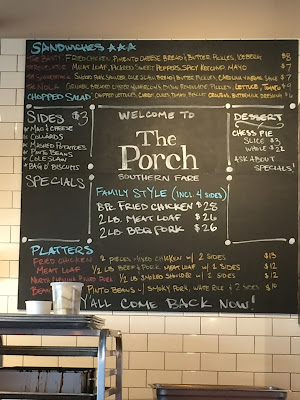 SANDWICHES
FRIED CHICKEN, PIMENTO CHEESE, BREAD & BUTTER PICKLES, ICEBERG $8
MEAT LOAF, PICKLED SWEET PEPPERS, SPICY KETCHUP, MAYO $7
SMOKED PORK SHOULDER, COLE SLAW, BREAD & BUTTER PICKLES, CAROLINA VINEGAR SAUCE $7
LETTUCE, TOMATO $9
CHOPPED SALAD CHOPPED LETTUCES, CARROT, CUKES, TOMATO, BISCUIT CROUTON, BUTTERMILK DRESSING $6
SIDES $3
MAC & CHEESE
COLLARDS
MASHED POTATOES
PINTO BEANS
COLE SLAW
BAG O' BISCUITS
SPECIALS
WELCOME TO
The
Porch
SOUTHERN FARE
FAMILY STYLE (INCL 4 SIDES)
8 PC. FRIED CHICKEN $26
2 LB. MEAT LOAF $26
2 LB. BBQ PORK $26
DESSERT
CHESS PIE
SLICE $3
WHOLE $22
ASK ABOUT
SPECIALS!
PLATTERS
FRIED CHICKEN 2 PIECES FRIED CHICKEN W/ 2 SIDES $13
MEAT LOAF 1/2 LB BEEF & PORK MEAT LOAF W/ 2 SIDES $12
NORTH CAROLINA PULLED PORK 1/2 LB SMOKED SHOULDER W/ 2 SIDES $12
PINTO BEANS W/ SMOKY PORK, WHITE RICE + 2 SIDES $10
Y'ALL COME BACK NOW!